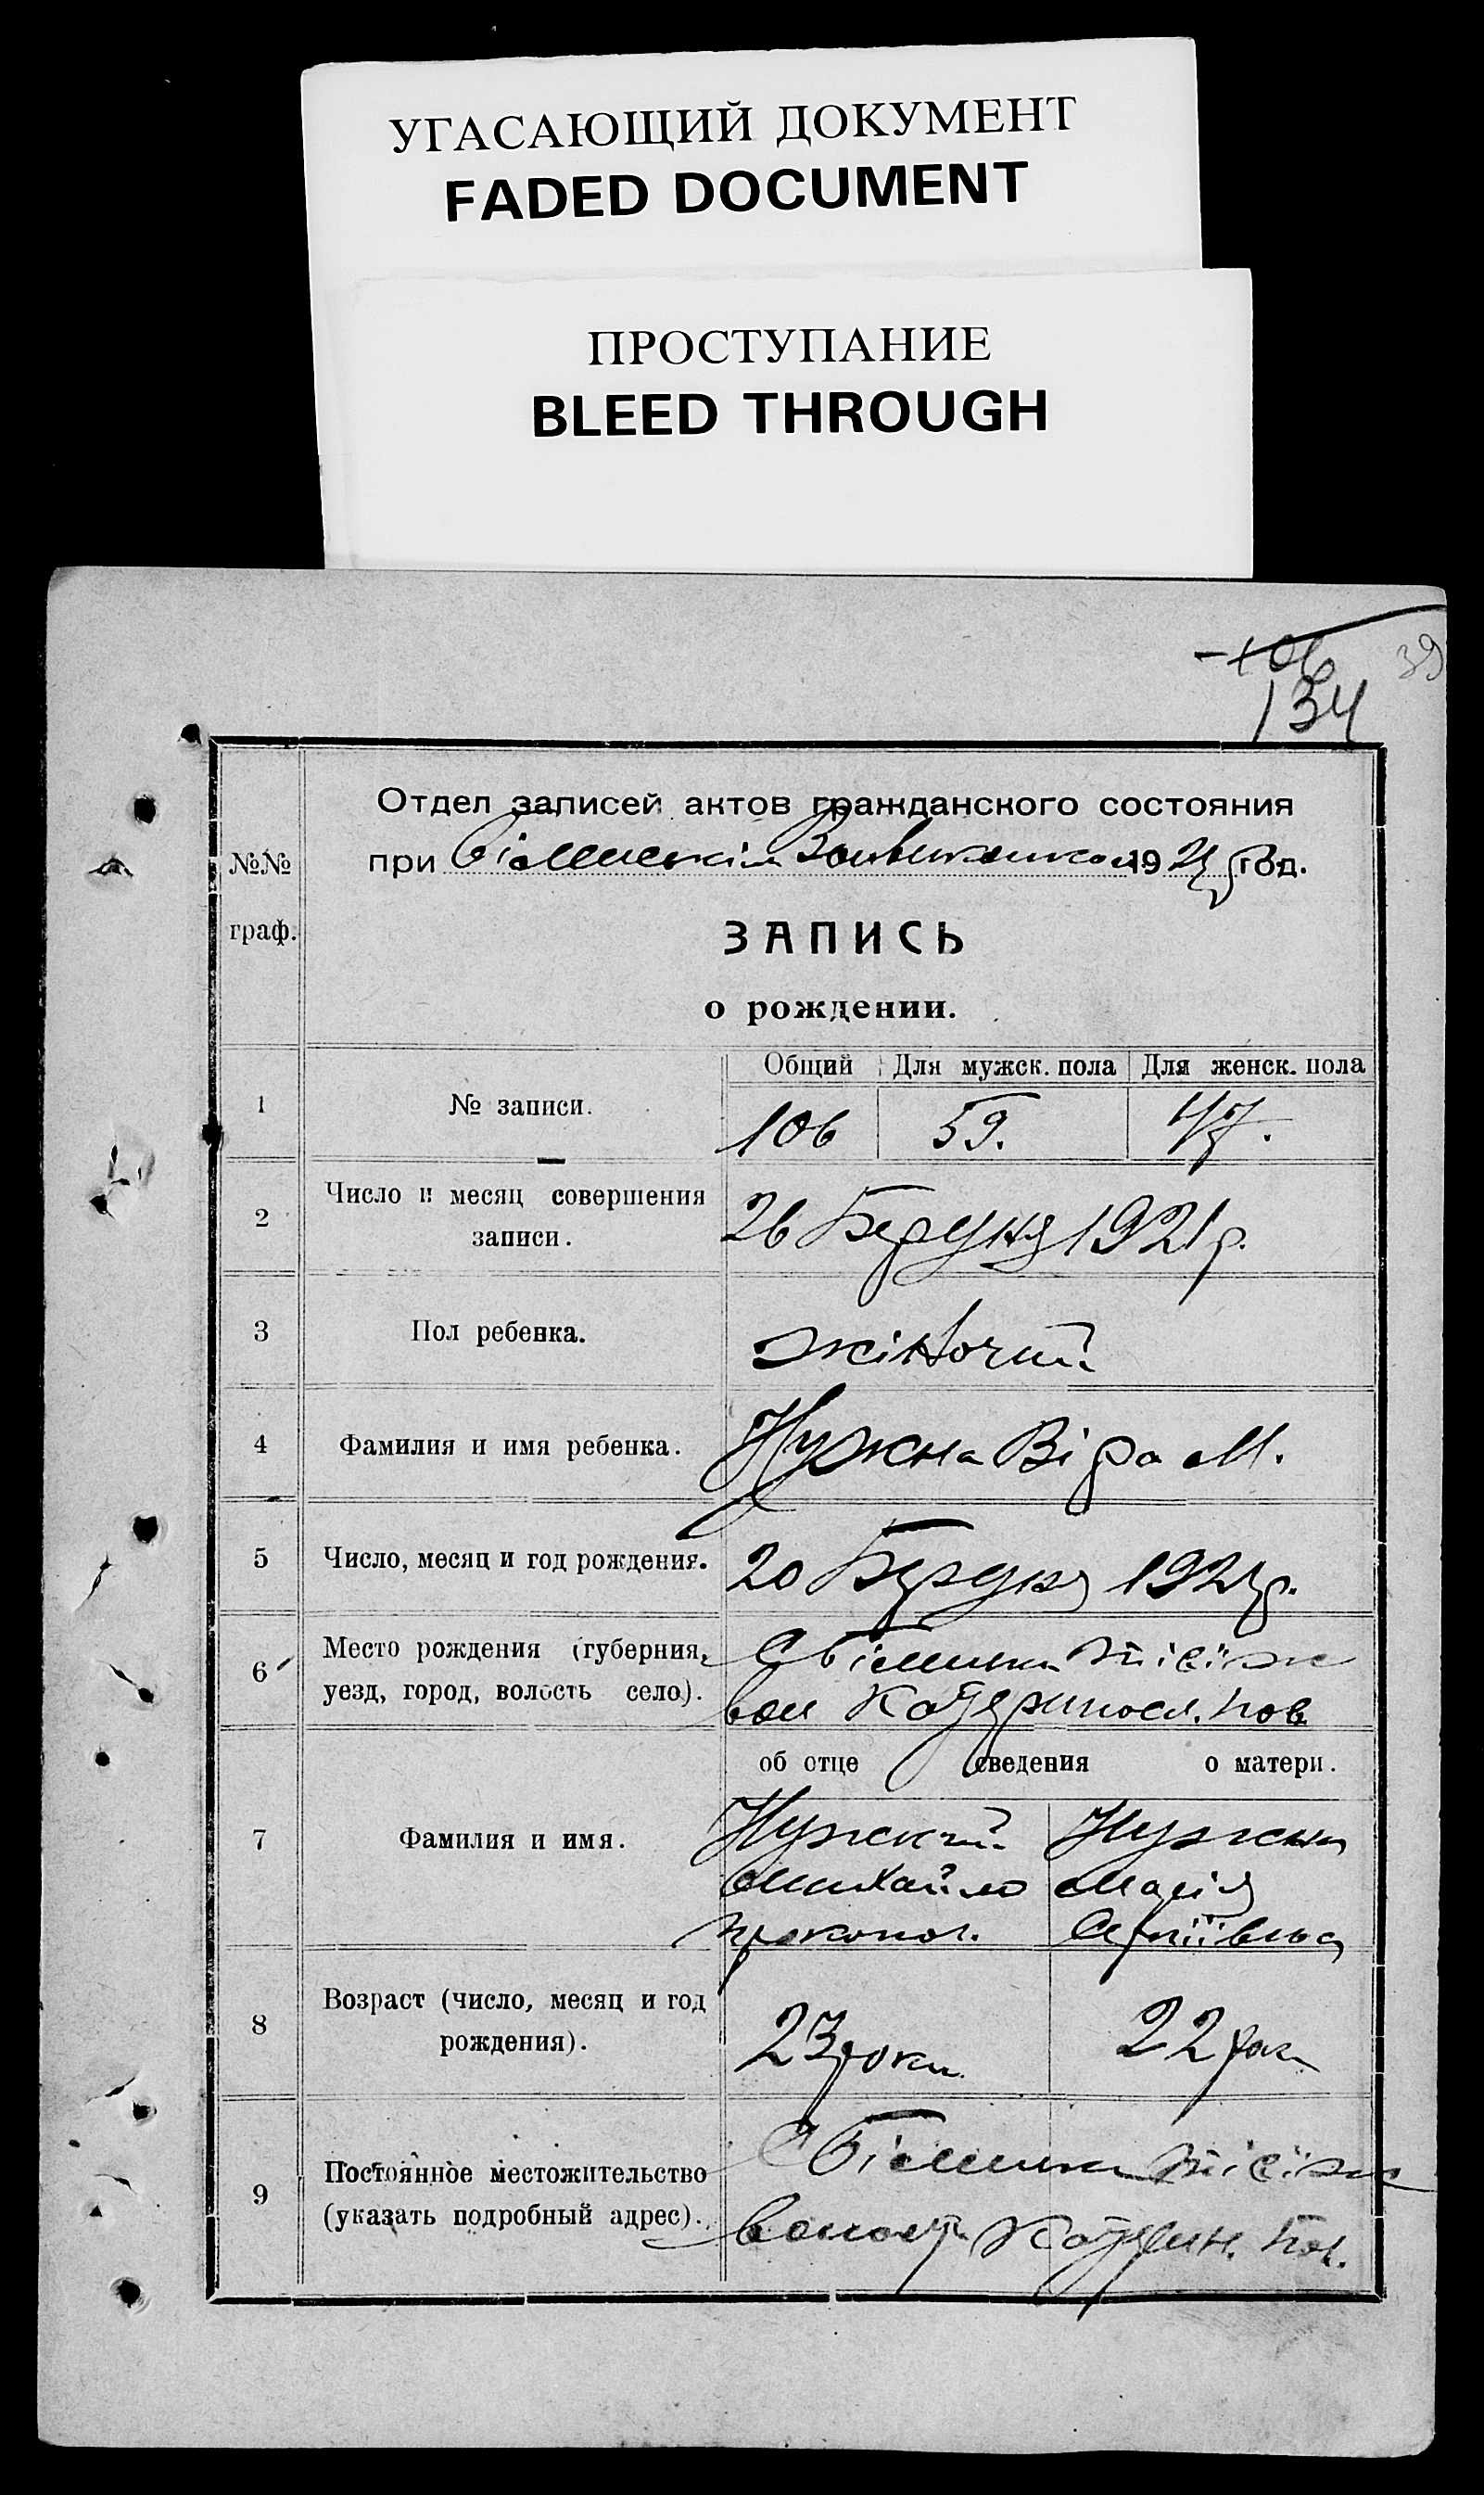 УГАСАЮЩИЙ ДОКУМЕНТ
FADED DOCUMENT
ПРОСТУПАНИЕ
BLEED THROUGH
106 39
134
Отдел записей актов гражданского состояния
№№ при 1921 год.
граф. ЗАПИСЬ
о рождении.
Общий Для мужск. пола Для женск. пола
1 № записи. 106 59. 47.
2 Число и месяц совершения
записи. 26 Березня 1921 р.
3 Пол ребенка. жіночий
4 Фамилия и имя ребенка. Нужна Віра М.
5 Число, месяц и год рождения. 20 Березня 1921 р.
6 Место рождения (губерния,
уезд, город, волость село). вол Катериносл. пов
об отце сведения о матери.
Нужний Нужна
7 Фамилия и имя. Михайло Марія
Прокопов. Сергіївна
8 Возраст (число, месяц и год
рождения). 23 роки 22 роки
9 Постоянное местожительство
(указать подробный адрес). волост Катерин. пов.